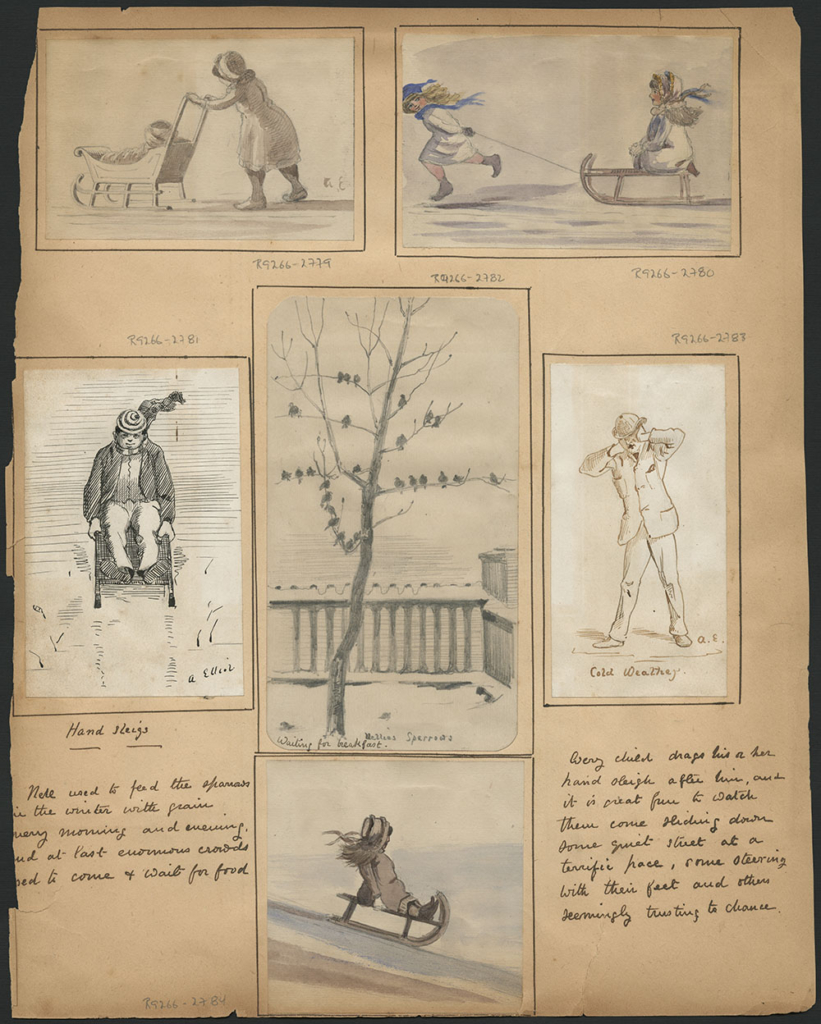 A.E
R9266-2779
R9266-2782
R9266-2780
R9266-2781
R9266-2783
A Elliot
A.E.
Cold Weather.
Nellies Sparrows
Waiting for breakfast.
Hand sleigs
Nell used to feed the sparrows
in the winter with grain
every morning and evening,
nd at last enormous crowds
sed to come & wait for food
Every child drags his or her
hand sleigh after him, and
it is great fun to watch
them come sliding down
some quiet street at a
terrific pace, some steering
with their feet and others
seemingly trusting to chance.
R9266-2784